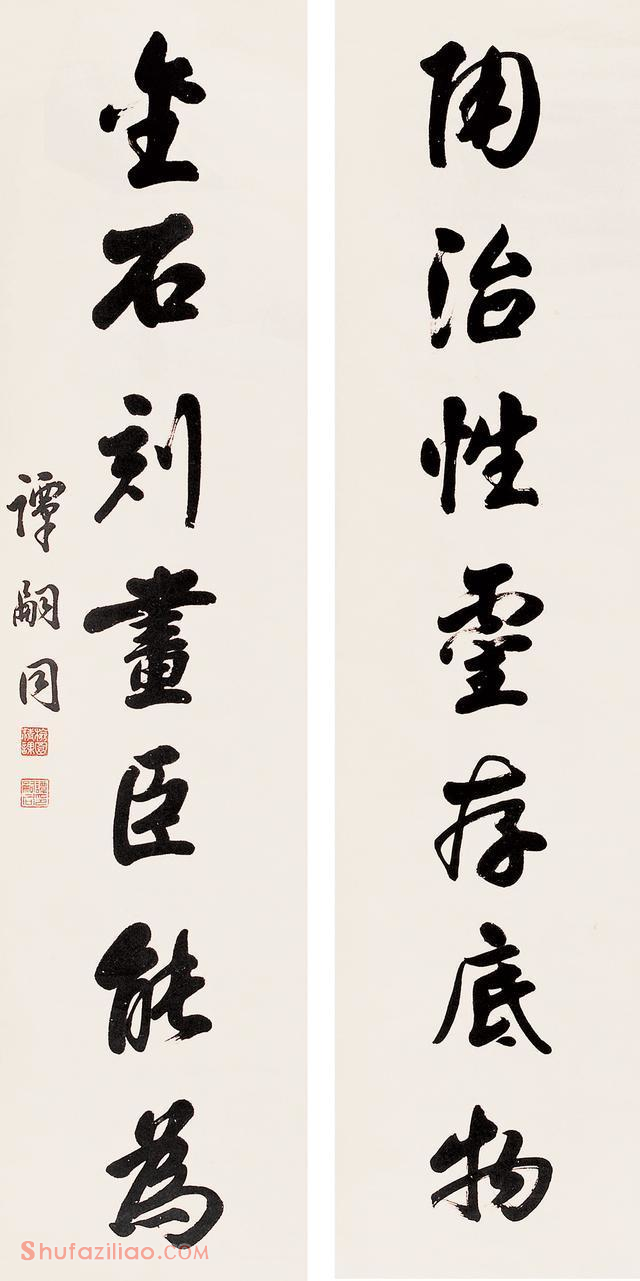 陶冶性靈存底物
金石刻畫臣能為
譚嗣同
Shufaziliao.COM